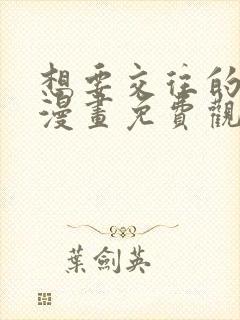 想要交往的
漫畫免費觀
葉劍英